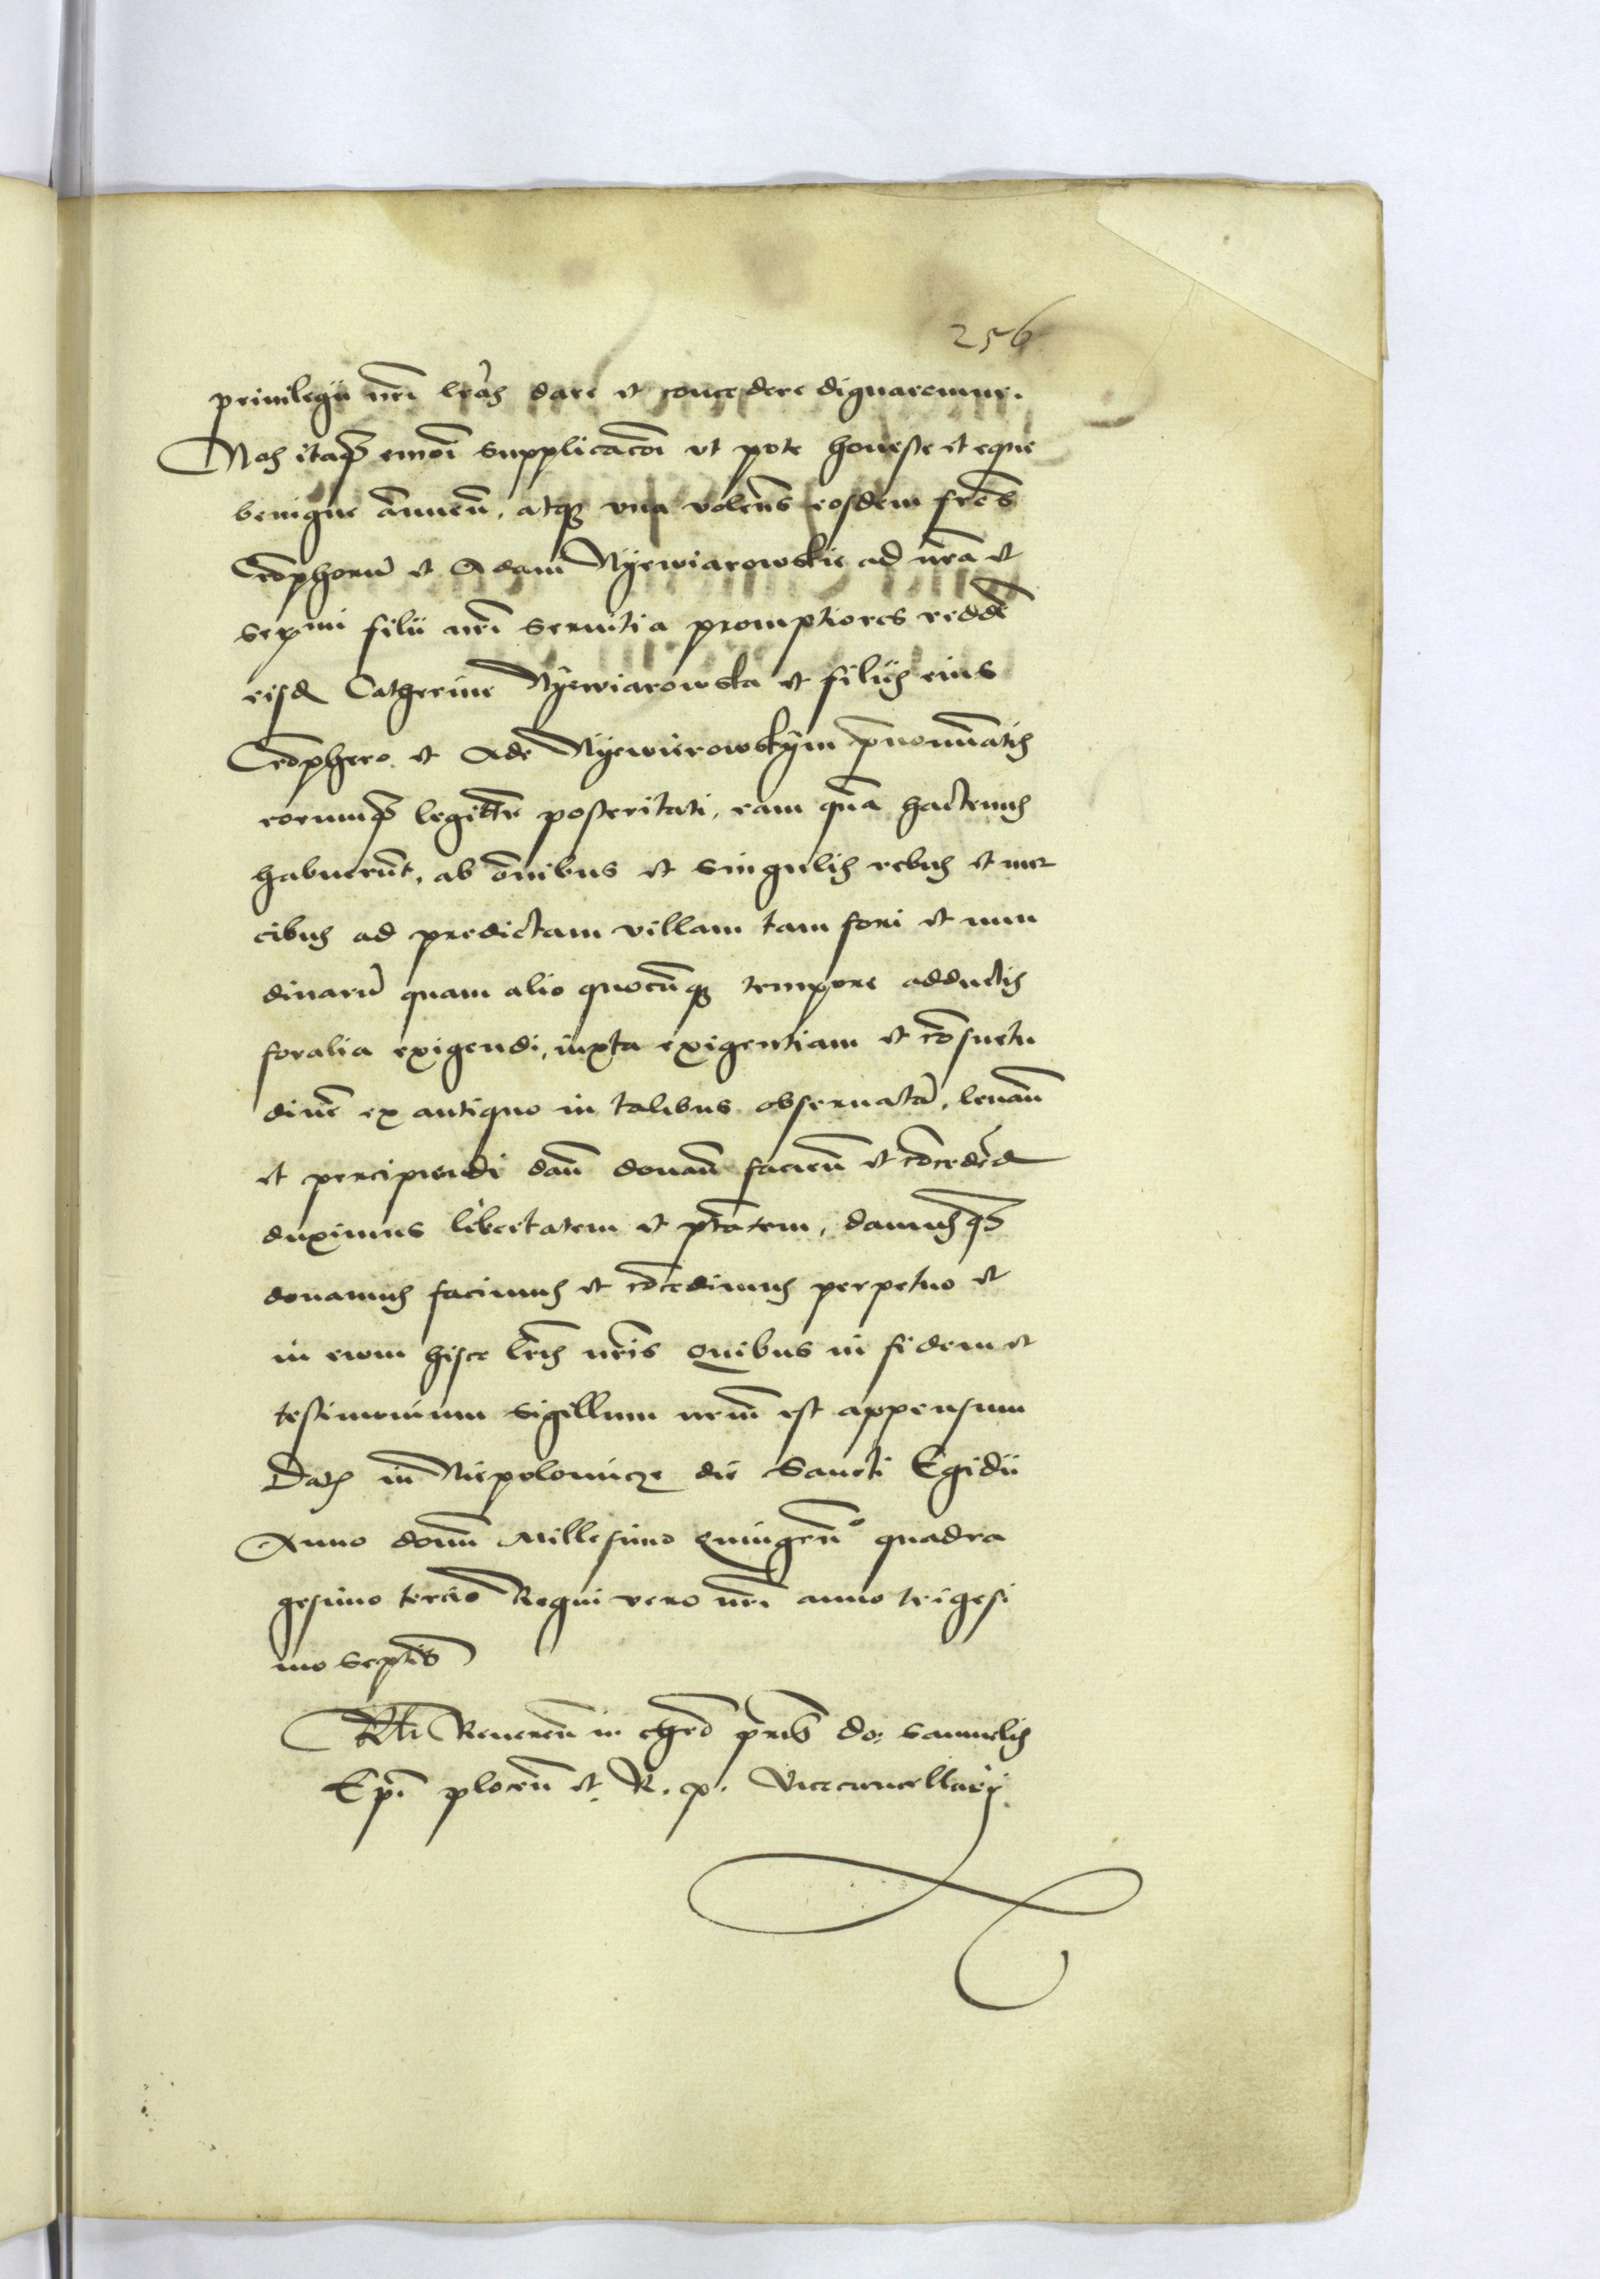 256
privilegii nri lras dare et concedere dignaremur.
Nos itaqz emoi supplicacoi ut pote honeste et eque
benigne annuen, atqz una volens eosdem fres
Crophoru et Adam Nyewiarowskie ad nra et
sermi filii nri servitia promptiores redde
eisd Catherine Nyewiarowska et filiis eius
Crophero et Ade Nyewierowskym prenominatis
eorumqz legitte posteritati, eam qua hactenus
habuerut, ab omibus et singulis rebus et mer
cibus ad predictam villam tam fori et nun
dinaru quam alio quocuqz tempore adductis
foralia exigendi, iuxta exigentiam et cosuetu
dine ex antiquo in talibus observata, levan
et percipiendi dan donan facien et cocedend
duximus libertatem et ptatem, damusqz
donamus facimus et cocedimus perpetuo et
in evum hisce lris nris Quibus in fidem et
testimonium sigillum nrum est appensum
Dat in Niepolomicze die Sancti Egidii
Anno domi Millesimo quingen° quadra
gesimo tercio Regni vero nri anno trigesi
mo septimo
Rlti Reveren in chro pris do: Samuelis
Epi plocen et R. p. Vicecancellarij.